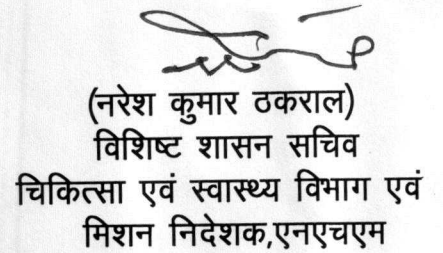 (नरेश कुमार ठकराल)
विशिष्ट शासन सचिव
चिकित्सा एवं स्वास्थ्य विभाग एवं
मिशन निदेशक,एनएचएम